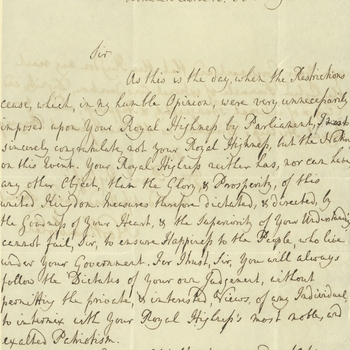 Sir
As this is the day, when the Restrictions
cease, which, in my humble Opinion, were very unnecessarily
imposed upon Your Royal Highness by Parliament, I most
sincerely congratulate, not your Royal Highness, but the Nation
on this Event. Your Royal Highness neither has, nor can have
any other Object, than the Glory, & Prosperity, of this
united Kingdom. Measures therefore dictated, & directed, by
the Goodness of Your Heart, & the Superiority of Your Understanding
cannot fail, Sir, to ensure Happiness to the People, who live
under Your Government. For I trust, Sir, You will always
follow the Dictates of Your own Judgement, without
permitting the private, & interested Views, of any Individual,
to intermix with Your Royal Highness's most noble, and
exalted Patriotism.